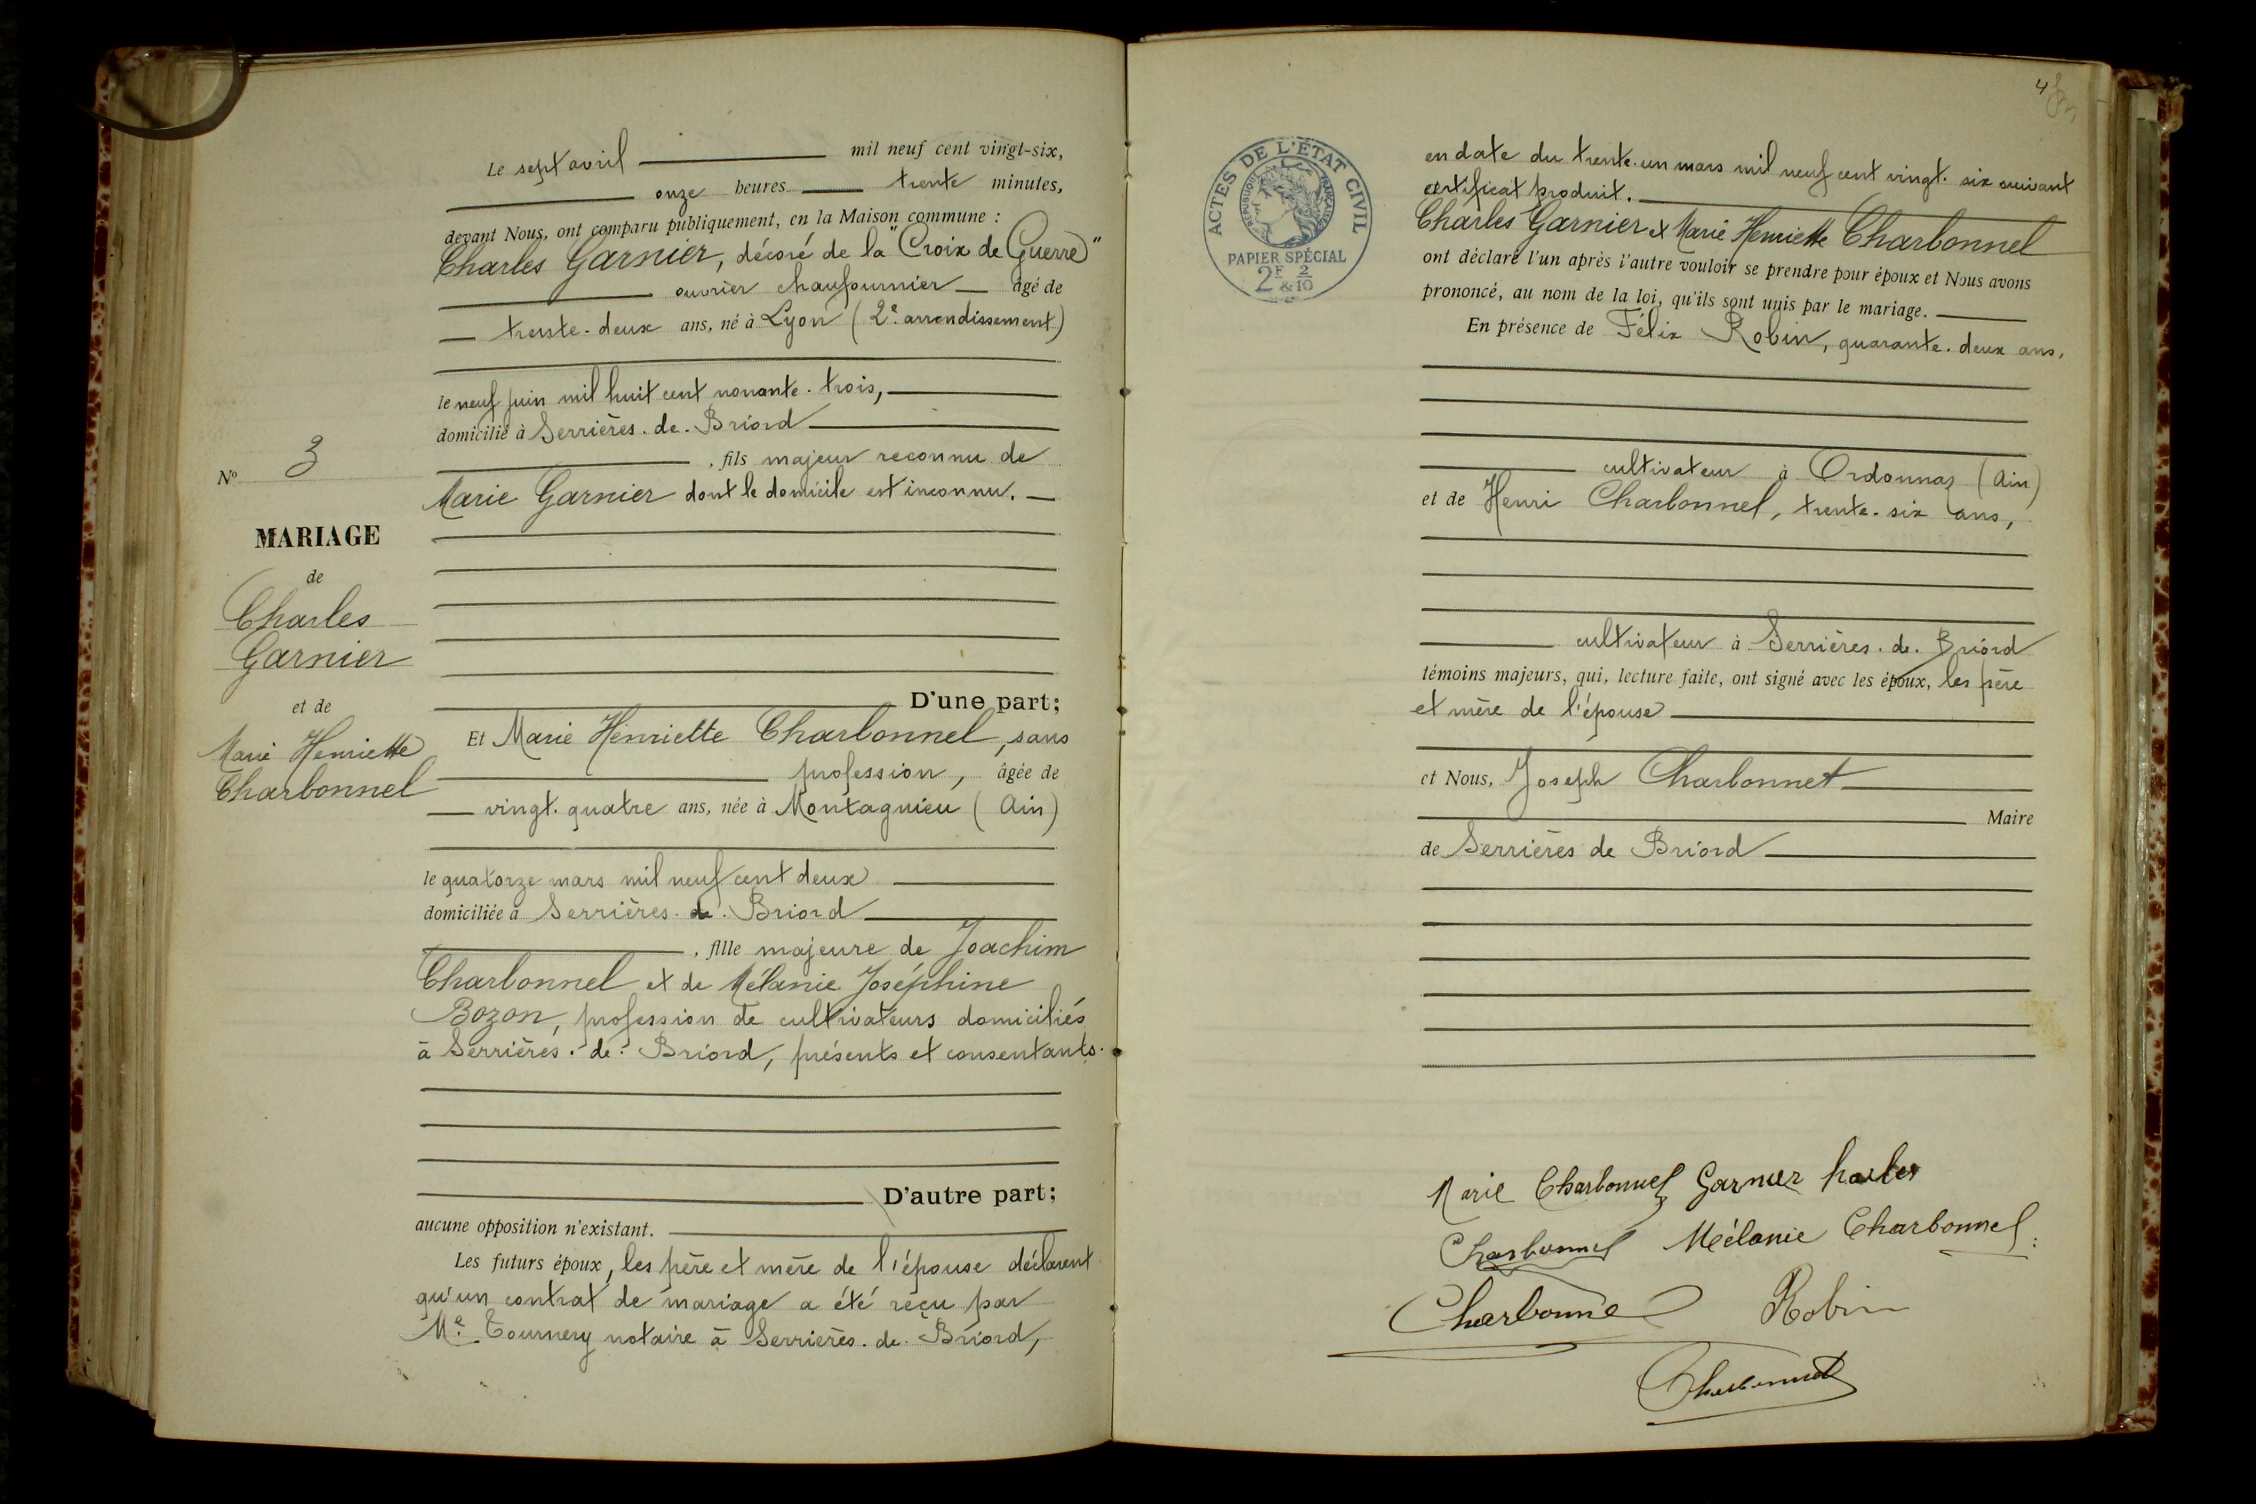 Le sept avril mil neuf cent vingt-six,
onze heures trente minutes,
devant Nous, ont comparu publiquement, en la Maison commune :
Charles Garnier, décoré de la "Croix de Guerre"
ouvrier chaufournier âgé de
trente-deux ans, né à Lyon (2e arrondissement)
le neuf juin mil huit cent nonante-trois,
domicilié à Serrières-de-Briord
, fils majeur reconnu de
Marie Garnier dont le domicile est inconnu.
No 3
MARIAGE
de
Charles
Garnier
et de
Marie Henriette
Charbonnel
D'une part;
Et Marie Henriette Charbonnel, sans
profession, âgée de
vingt-quatre ans, née à Montagnieu (Ain)
le quatorze mars mil neuf cent deux
domiciliée à Serrières-de-Briord
, fille majeure de Joachim
Charbonnel et de Mélanie Joséphine
Bozon, profession de cultivateurs domiciliés
à Serrières-de-Briord, présents et consentants.
D'autre part;
aucune opposition n'existant.
Les futurs époux, les père et mère de l'épouse déclarent
qu'un contrat de mariage a été reçu par
Me Tournery notaire à Serrières-de-Briord,
4
ACTES DE L'ÉTAT CIVIL
RÉPUBLIQUE FRANÇAISE
PAPIER SPÉCIAL
2F & 2/10
en date du trente-un mars mil neuf cent vingt-six suivant
certificat produit.
Charles Garnier et Marie Henriette Charbonnel
ont déclaré l'un après l'autre vouloir se prendre pour époux et Nous avons
prononcé, au nom de la loi, qu'ils sont unis par le mariage.
En présence de Félix Robin, quarante-deux ans,
cultivateur à Ordonnaz (Ain)
et de Henri Charbonnel, trente-six ans,
cultivateur à Serrières-de-Briord
témoins majeurs, qui, lecture faite, ont signé avec les époux, les père
et mère de l'épouse
et Nous, Joseph Charbonnet
Maire
de Serrières de Briord
Marie Charbonnel Garnier harles
Charbonnel Mélanie Charbonnel
Charbonnel Robin
Charbonnet